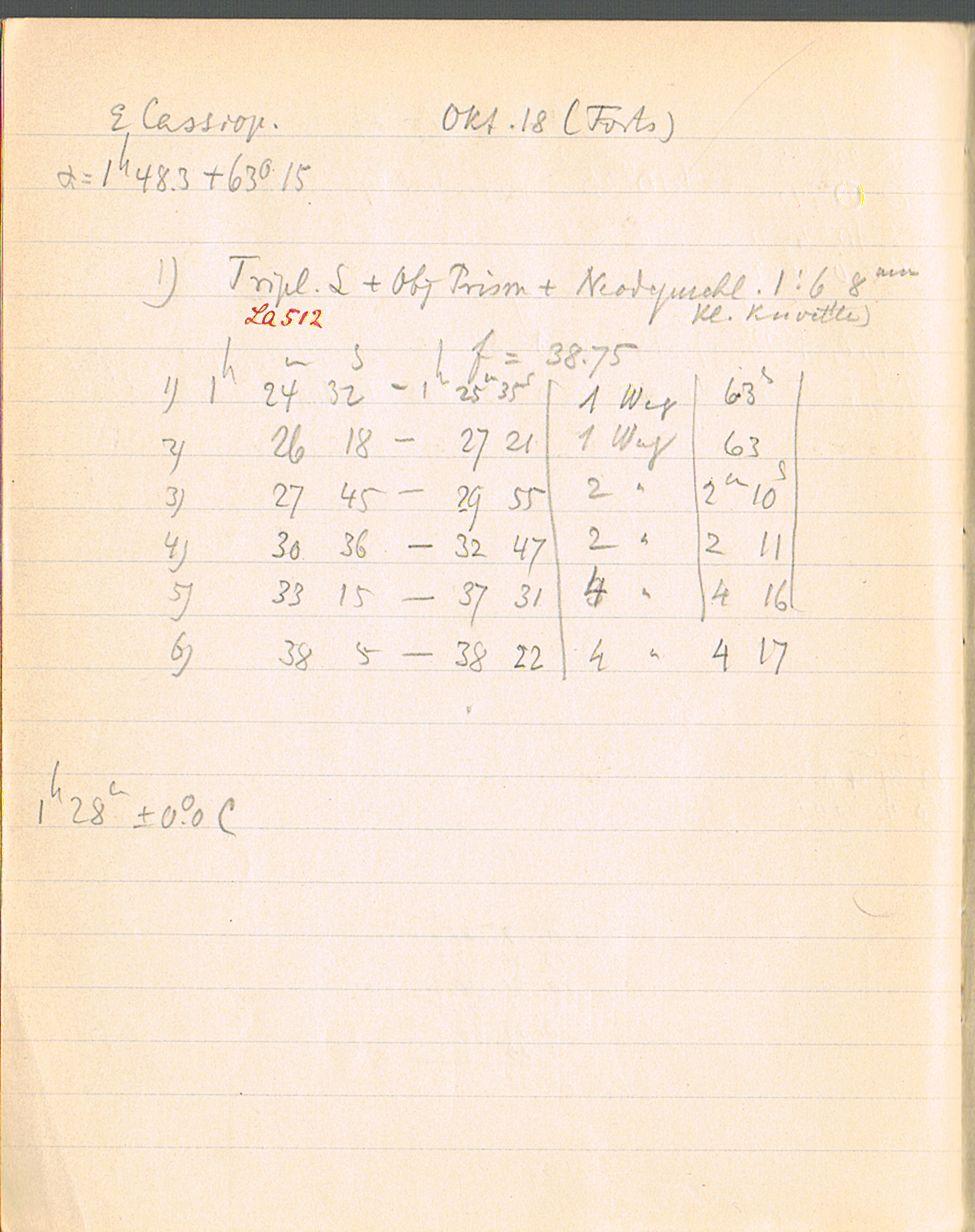 ε Cassiop. Okt. 18 (Forts)
α = 1ʰ 48.3 + 63° 15
1) Tripl. L + Obj Prism + Neodymchl. 1:6 8ᵐᵐ
La 512 Kl. Kuvette)
f = 38.75
1) 1ʰ 24ᵐ 32ˢ – 1ʰ 25ᵐ 35ˢ 1 Weg 63ˢ
2) 26 18 – 27 21 1 Weg 63
3) 27 45 – 29 55 2 " 2ᵐ 10ˢ
4) 30 36 – 32 47 2 " 2 11
5) 33 15 – 37 31 4 " 4 16
6) 38 5 – 38 22 4 " 4 17
1ʰ 28ᵐ ±0°.0 C